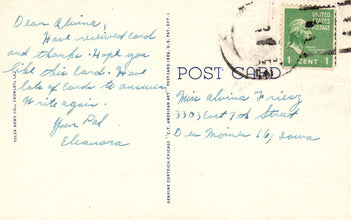 Dear Alvina,
Have received card
and thanks. Hope you
like this card. Have
lots of cards to answer
Write again.
Your Pal
Eleanora
GENUINE CURTEICH-CHICAGO "C.T. AMERICAN ART" POST CARD (REG. U.S. PAT. OFF.)
POST CARD
UNITED STATES
POSTAGE
1 CENT 1
Miss Alvina Friesz
3303 East 7th Street
Des Moines 16, Iowa